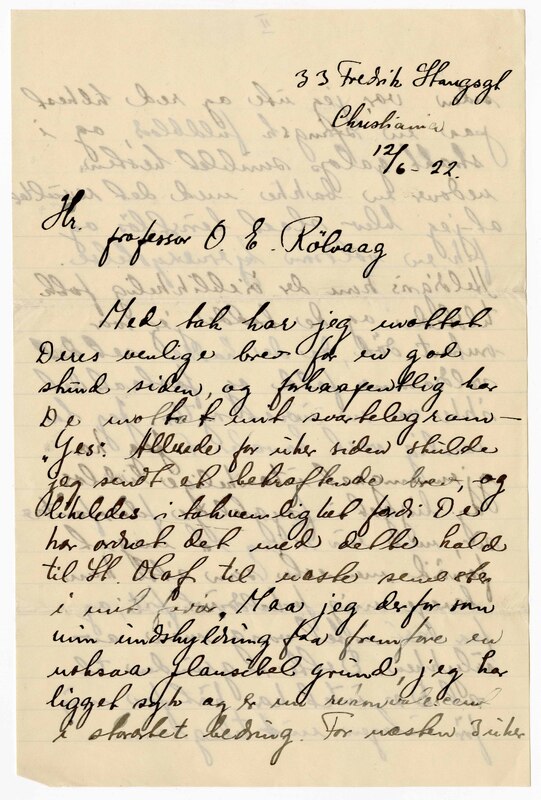 33 Fredrik Stangsgt
Christiania
12/6 - 22.
Hr.
professor O E. Rölvaag
Med tak har jeg mottat
Deres venlige brev for en god
stund siden, og forhaapentlig har
De mottat mit svartelegram —
"Yes". Allerede for uker siden skulde
jeg sendt et bekræftende brev, og
likeledes i taknemlighet fordi De
har ordnet det med dette kald
til St. Olaf til næste semester
i mit Maa jeg derfor som
min undskyldning faa fremføre en
noksaa plausibel grund, jeg har
ligget syk og er nu rekonvalescent
i storartet bedring. For næsten 3 uker